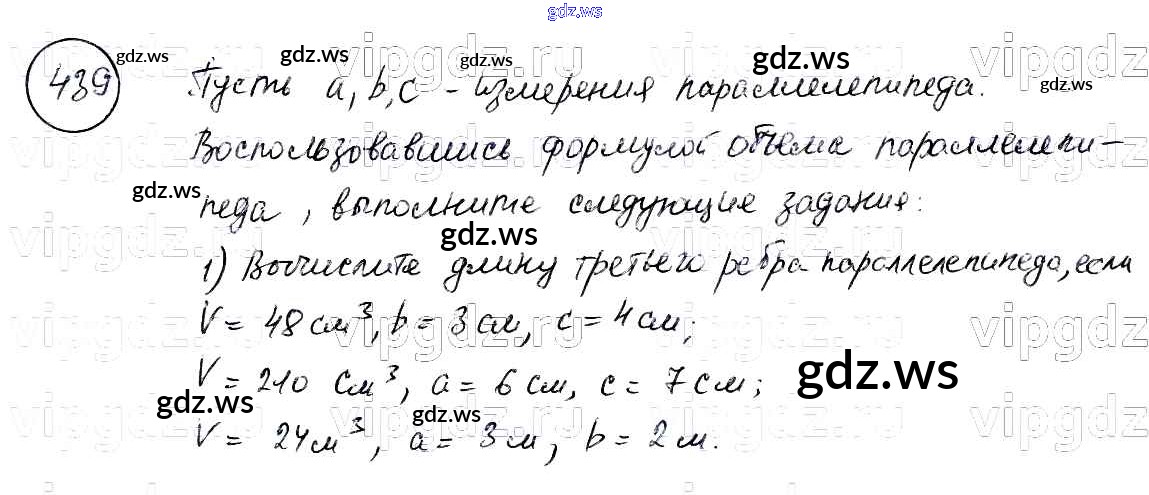 gdz.ws
439
Пусть a, b, c - измерения параллелепипеда.
Воспользовавшись формулой объема параллелепи-
педа, выполните следующие задания:
1) Вычислите длину третьего ребра параллелепипеда, если
V = 48 см³, b = 3 см, c = 4 см;
V = 210 см³, a = 6 см, c = 7 см;
V = 24 м³, a = 3 м, b = 2 м.
gdz.ws
gdz.ws
gdz.ws
gdz.ws
gdz.ws
gdz.ws
gdz.ws
gdz.ws
gdz.ws
gdz.ws
vipgdz.ru
vipgdz.ru
vipgdz.ru
vipgdz.ru
vipgdz.ru
vipgdz.ru
vipgdz.ru
vipgdz.ru